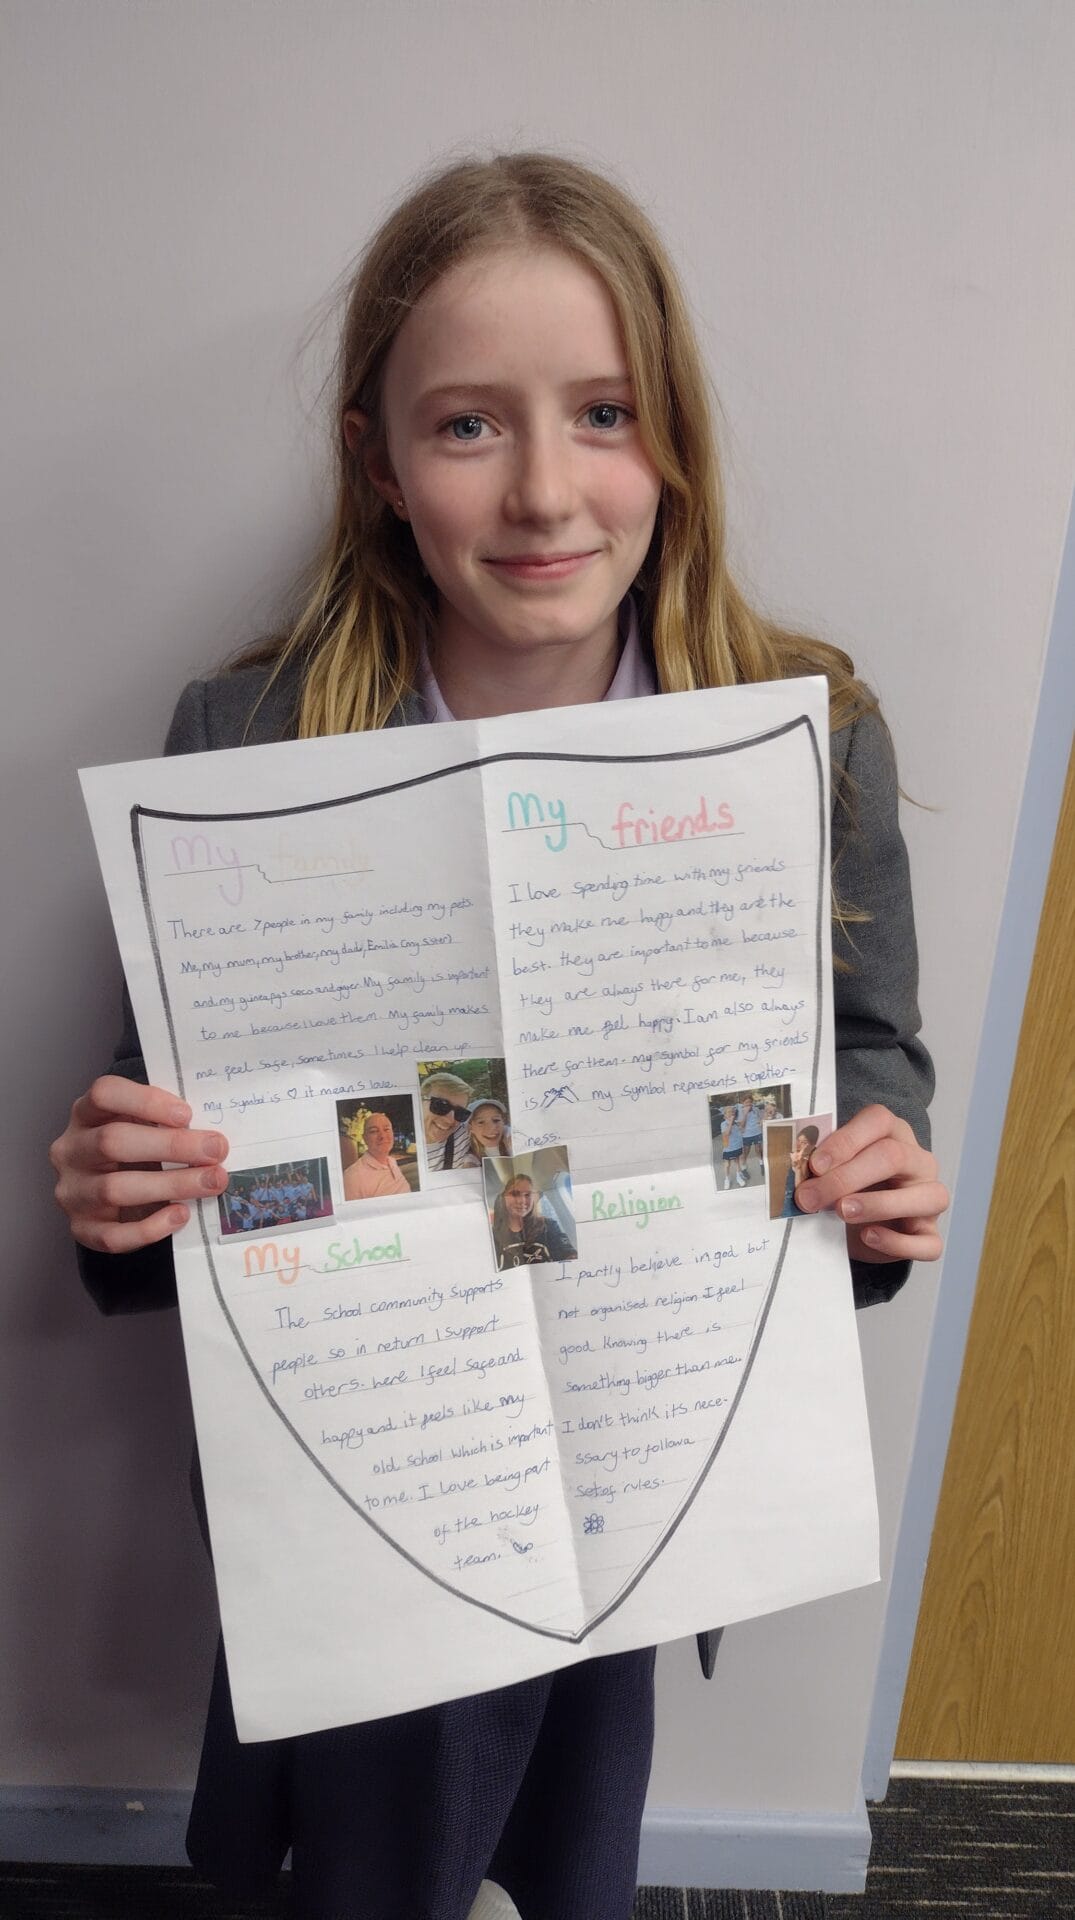 My family
There are 7 people in my family including my pets.
Me, my mum, my brother, my dad, Emilia (my sister)
and my guineapigs coco and ginger. My family is important
to me because I love them. My family makes
me feel safe, sometimes I help clean up.
my symbol is ♡ it means love.
My friends
I love spending time with my friends
they make me happy and they are the
best. they are important to me because
they are always there for me, they
make me feel happy. I am also always
there for them. my symbol for my friends
is my symbol represents together-
ness.
My School
The school community supports
people so in return I support
others. here I feel safe and
happy and it feels like my
old school which is important
to me. I love being part
of the hockey
team.
Religion
I partly believe in god but
not organised religion. I feel
good knowing there is
something bigger than me.
I don't think it's nece-
ssary to follow a
set of rules.